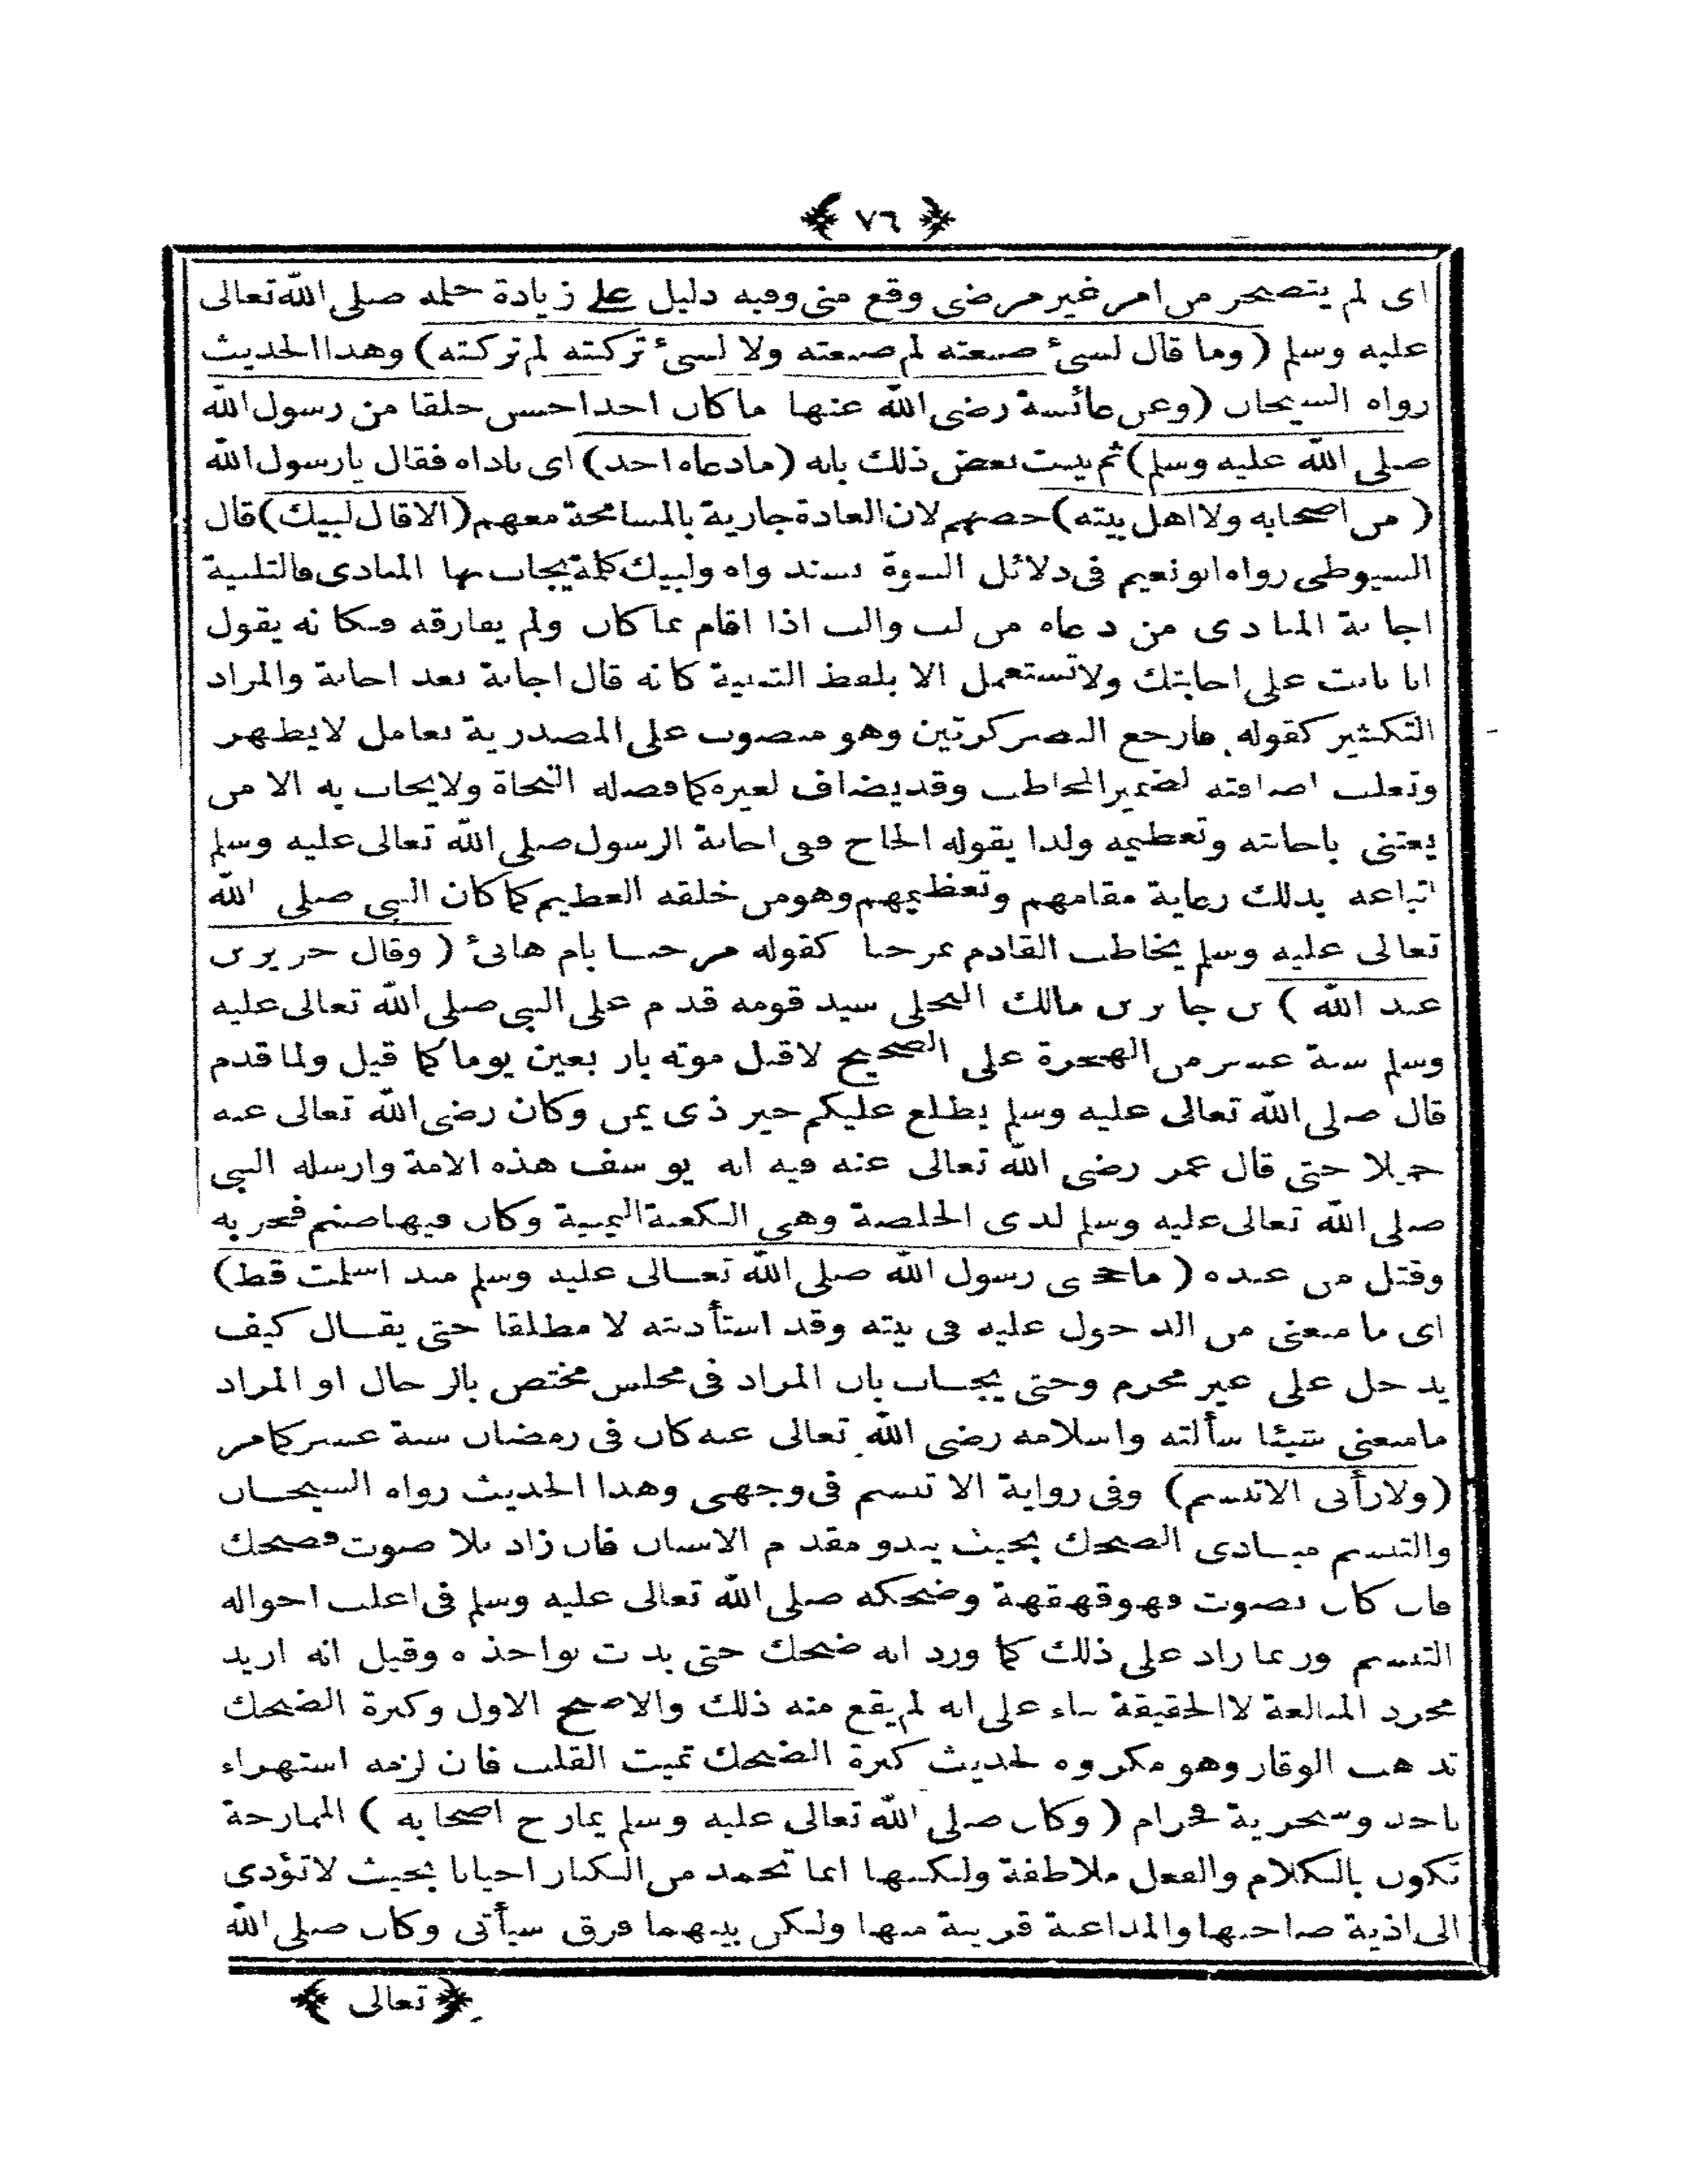 ﴿ ٧٦ ﴾
اى لم يتضجر من امر غير مرضى وقع منى وفيه دليل على زيادة حلمه صلى الله تعالى
عليه وسلم (وما قال لشئ صنعته لم صنعته ولا لشئ تركته لم تركته) وهذا الحديث
رواه الشيخان (وعن عائشة رضى الله عنها ما كان احد احسن خلقا من رسول الله
صلى الله عليه وسلم) ثم بينت بعض ذلك بانه (ما دعاه احد) اى ناداه فقال يا رسول الله
(من اصحابه ولا اهل بيته) خصهم لان العادة جارية بالمسامحة معهم (الا قال لبيك) قال
السيوطى رواه ابو نعيم فى دلائل النبوة بسند واه ولبيك كلة يجاب بها المنادى فالتلبية
اجابة المنادى من دعاه من لب والب اذا اقام بمكان ولم يفارقه فكانه يقول
انا ثابت على اجابتك ولا تستعمل الا بلفظ التثنية كانه قال اجابة بعد اجابة والمراد
التكثير كقوله فارجع البصر كرتين وهو منصوب على المصدرية بعامل لا يظهر
وتغلب اضافته لضمير المخاطب وقد يضاف لغيره كما فصله النحاة ولا يجاب به الا من
يعتنى باجابته وتعظيمه ولذا يقوله الحاج ففى اجابة الرسول صلى الله تعالى عليه وسلم
اتباعه بذلك رعاية مقامهم وتعظيمهم وهو من خلقه العظيم كما كان النبى صلى الله
تعالى عليه وسلم يخاطب القادم بمرحبا كقوله مرحبا بام هانئ (وقال جرير بن
عبد الله) بن جابر بن مالك البجلى سيد قومه قدم على النبى صلى الله تعالى عليه
وسلم سنة عشر من الهجرة على الصحيح لا قبل موته باربعين يوما كما قيل ولما قدم
قال صلى الله تعالى عليه وسلم يطلع عليكم خير ذى يمن وكان رضى الله تعالى عنه
جميلا حتى قال عمر رضى الله تعالى عنه فيه انه يوسف هذه الامة وارسله النبى
صلى الله تعالى عليه وسلم لذى الخلصة وهى الكعبة اليمنية وكان فيها صنم فخربه
وقتل من عبده (ما حجبنى رسول الله صلى الله تعالى عليه وسلم منذ اسلمت قط)
اى ما منعنى من الدخول عليه فى بيته وقد استأذنته لا مطلقا حتى يقال كيف
يدخل على غير محرم وحتى يجاب بان المراد فى مجلس مختص بالرجال او المراد
ما منعنى شيئا سألته واسلامه رضى الله تعالى عنه كان فى رمضان سنة عشر كما مر
(ولا رأنى الا تبسم) وفى رواية الا تبسم فى وجهى وهذا الحديث رواه الشيخان
والتبسم مبادى الضحك بحيث يبدو مقدم الاسنان فان زاد بلا صوت فضحك
فان كان بصوت فهو قهقهة وضحكه صلى الله تعالى عليه وسلم فى اغلب احواله
التبسم وربما زاد على ذلك كما ورد انه ضحك حتى بدت نواجذه وقيل انه اريد
مجرد المبالغة لا الحقيقة بناء على انه لم يقع منه ذلك والاصح الاول وكثرة الضحك
تذهب الوقار وهو مكروه لحديث كثرة الضحك تميت القلب فان لزمه استهزاء
باحد وسخرية فحرام (وكان صلى الله تعالى عليه وسلم يمازح اصحابه) الممازحة
تكون بالكلام والفعل ملاطفة ولكنها انما تحمد من الكبار احيانا بحيث لا تؤدى
الى اذية صاحبها والمداعبة قريبة منها ولكن بينهما فرق سيأتى وكان صلى الله
﴿ تعالى ﴾